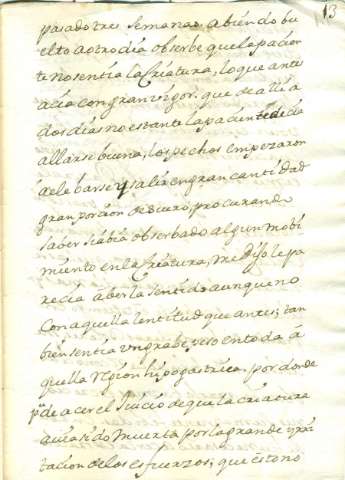 13
pasado tres semanas abiendo bu
elto a otro dia obserbe que la pacien
te no sentia la Criatura, lo que ante
acia con gran vigor, que de alli a
dos dias no estante la paciente decia
allarse buena, los pechos empezaron
a elebarse y salir en gran cantidad
gran porcion de suero, procurando
saver si abia obserbado algun mobi
miento en la Criatura, me dijo le pa
recia aberla sentido aunque no
con aquella lentitud que antes; tan
bien sentia un grabe peso en toda a
quella Region hipogastrica, por donde
pude acer el Juicio de que la criatura
avia sido muerta por la grande yrri
tacion de los esfuerzos, que esto no